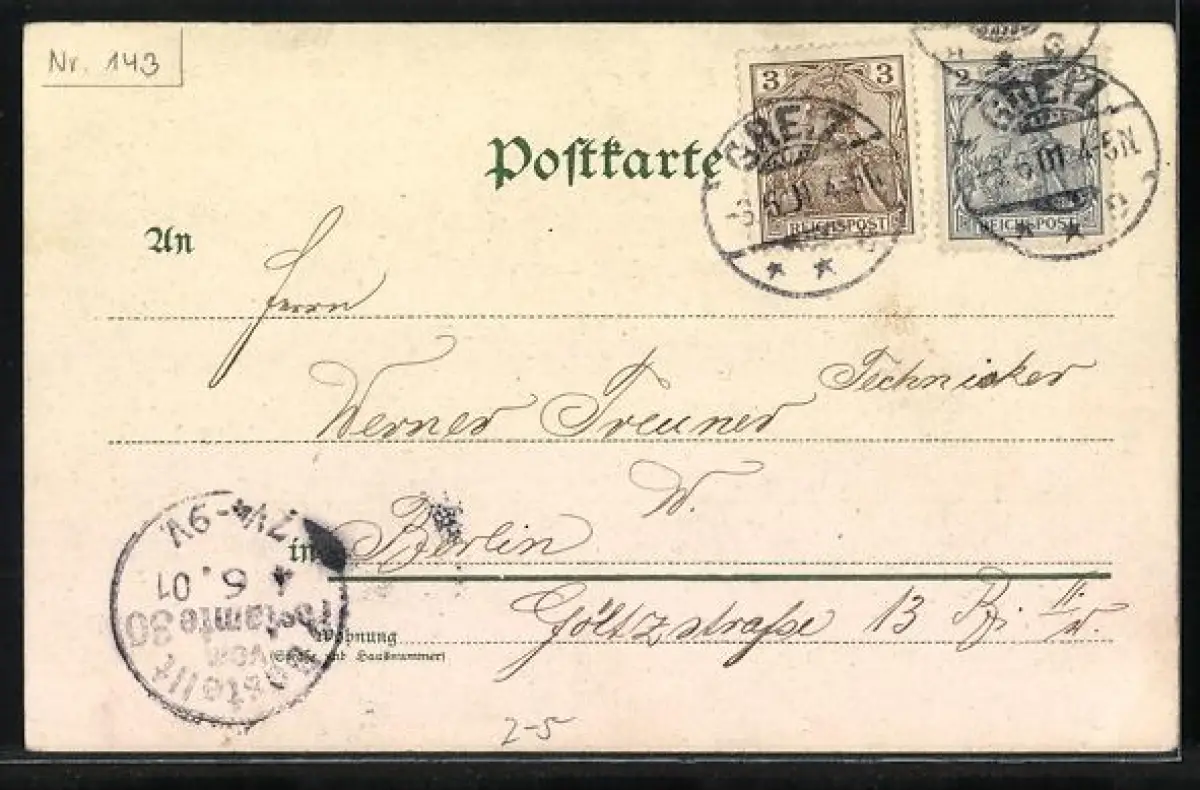 Nr. 143
3 3
REICHSPOST
2
REICHSPOST
GREIZ
GREIZ
6.01 4-5N.
Postkarte
An
Herrn
Werner Treuner Technicker
W.
in Berlin
Wohnung
(Straße und Hausnummer)
Göltzstraße 13
Bestellt
vom
Postamte 30
4 6.01
7¼-9V.
2-5